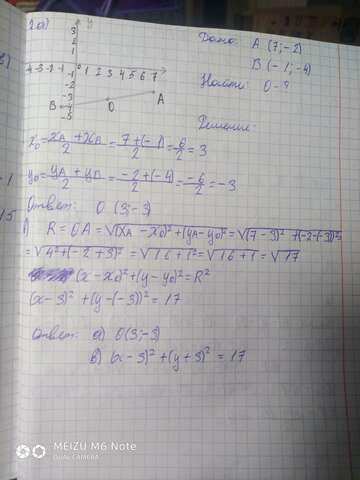 2a)
y
3
2
1
-4 -3 -2 -1 0 1 2 3 4 5 6 7
-1
-2
-3
-4
-5
B
O
A
Дано: A (7; -2)
B (-1; -4)
Найти: O - ?
Решение:
x₀ = (xA + xB)/2 = (7 + (-1))/2 = 6/2 = 3
y₀ = (yA + yB)/2 = (-2 + (-4))/2 = -6/2 = -3
Ответ: O (3; -3)
R = OA = √(xA - x₀)² + (yA - y₀)² = √(7-3)² + (-2-(-3))²
= √4² + (-2+3)² = √16 + 1² = √16 + 1 = √17
(x - x₀)² + (y - y₀)² = R²
(x - 3)² + (y - (-3))² = 17
Ответ: a) O(3; -3)
b) (x - 3)² + (y + 3)² = 17
MEIZU M6 Note
DUAL CAMERA